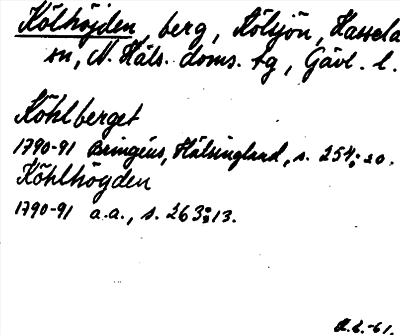 Kölhöjden, berg, Kölsjön, Hassela
sn, N. Häls. doms. tg, Gävl. l.
Köhlberget
1790-91 Bringéus, Hälsingland, s. 254:20.
Köhlhögden
1790-91 a.a., s. 263:13.